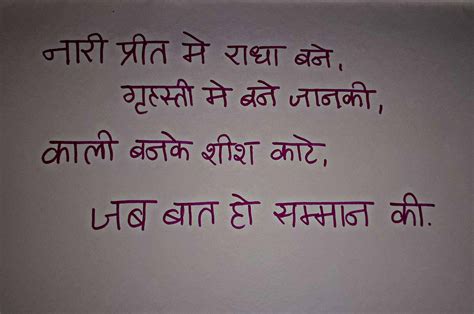 नारी प्रीत मे राधा बने,
गृहस्ती मे बने जानकी,
काली बनके शीश काटे,
जब बात हो सम्मान की.